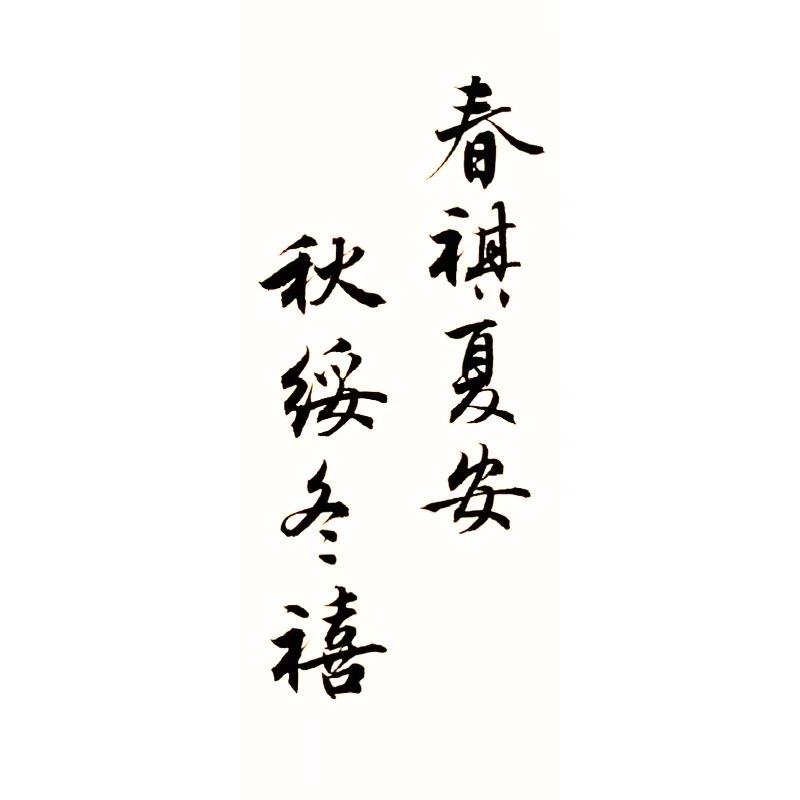 春祺夏安
秋绥冬禧